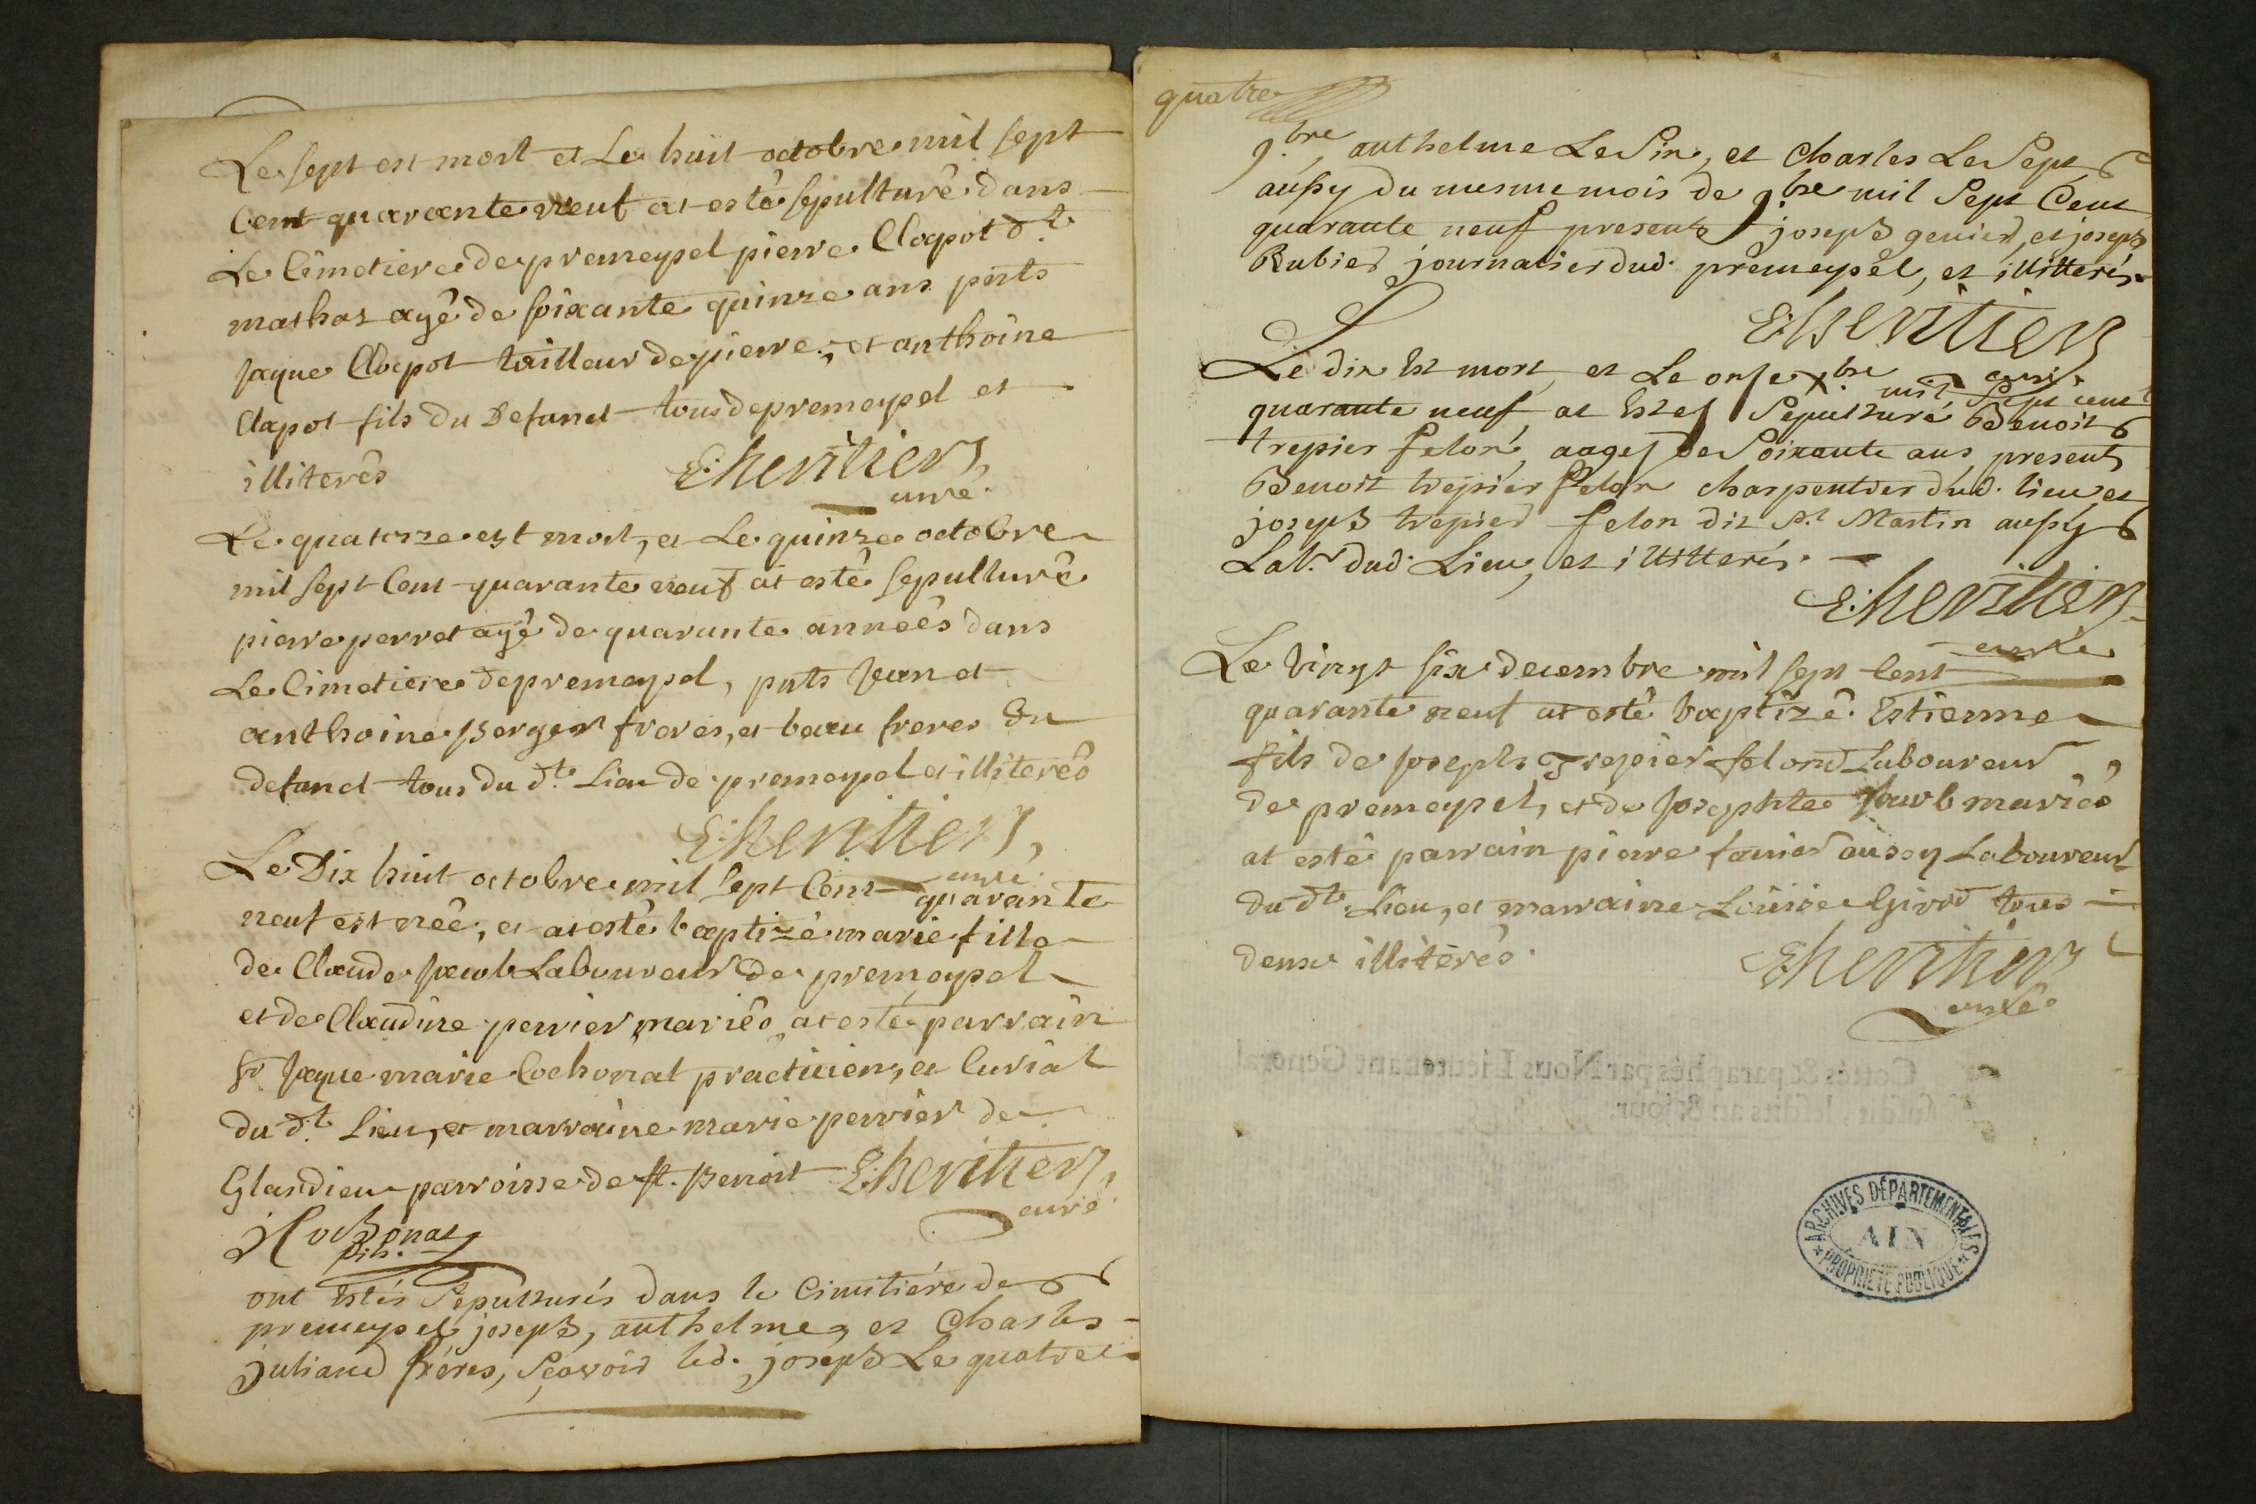 Le sept est mort et Le huit octobre mil sept
Cent quarante neuf at esté sepulturê dans
Le Cimetiere de premeysel pierre Clapot d.t
mathos agê de soixante quinze ans pnts
Jaque Clapot tailleur de pierre, et anthoine
Clapot fils du Defunct tous de premeysel et
illiterês
E: heritier,
curé.
Le quatorze est mort, et Le quinze octobre
mil sept Cent quarante neuf at esté sepulturê
pierre perret agê de quarante années dans
Le Cimetiere de premeysel, pnts Jean et
anthoine Berger freres, et beau freres Du
defunct tous du d.t Lieu de premeysel et illiterês
E: heritier,
curé.
Le Dix huit octobre mil sept Cent quarante
neuf est née, et at esté baptizé marie fille
de Claude Jacob Laboureur de premeysel
et de Claudine perrier mariês at esté parrain
Sr. Jaque marie Cochonat practicien, et Curial
du d.t Lieu, et marraine marie perrier de
Glandieu parroisse de st. Benoit E: heritier,
curé
J Cochonat
fils.
ont Estés Sepulturés dans le Cimitiére de
premeysel joseph, anthelme, et Charles
juliand fréres, Sçavoir led. joseph Le quatre
quatre
9.bre, anthelme Le Six, et Charles Le Sept
aussy du mesme mois de 9.bre mil Sept Cent
quarante neuf presents joseph genier, et joseph
Rubier journalier dud. premeysel, et illitterés
E: heritier
curé.
Le dix Est mort, et Le onse X.bre mil Sept cent
quarante neuf, at Estes Sepulturé Benoit
trepier felon, aages de Soixante ans, presents
Benoit trepier felon charpentier dud. lieu, et
joseph trepier felon dit st. Martin aussy
Lab.r dud. Lieu, et illitterés.
E: heritier
curé
Le Vingt six decembre mil sept Cent
quarante neuf at esté baptizê Estienne
fils de Joseph Trepier felond Laboureur
de premeysel, et de Josephte Jacob mariês
at esté parrain pierre fanier aussy Laboureur
du d.t Lieu, et marraine Louise Girod tous
deux illiterês.
E: heritier
curé
Cottés & paraphés par Nous Lieutenant General
susdit, lesdits an & jour.
ARCHIVES DÉPARTEMENTALES
AIN
PROPRIÉTÉ PUBLIQUE